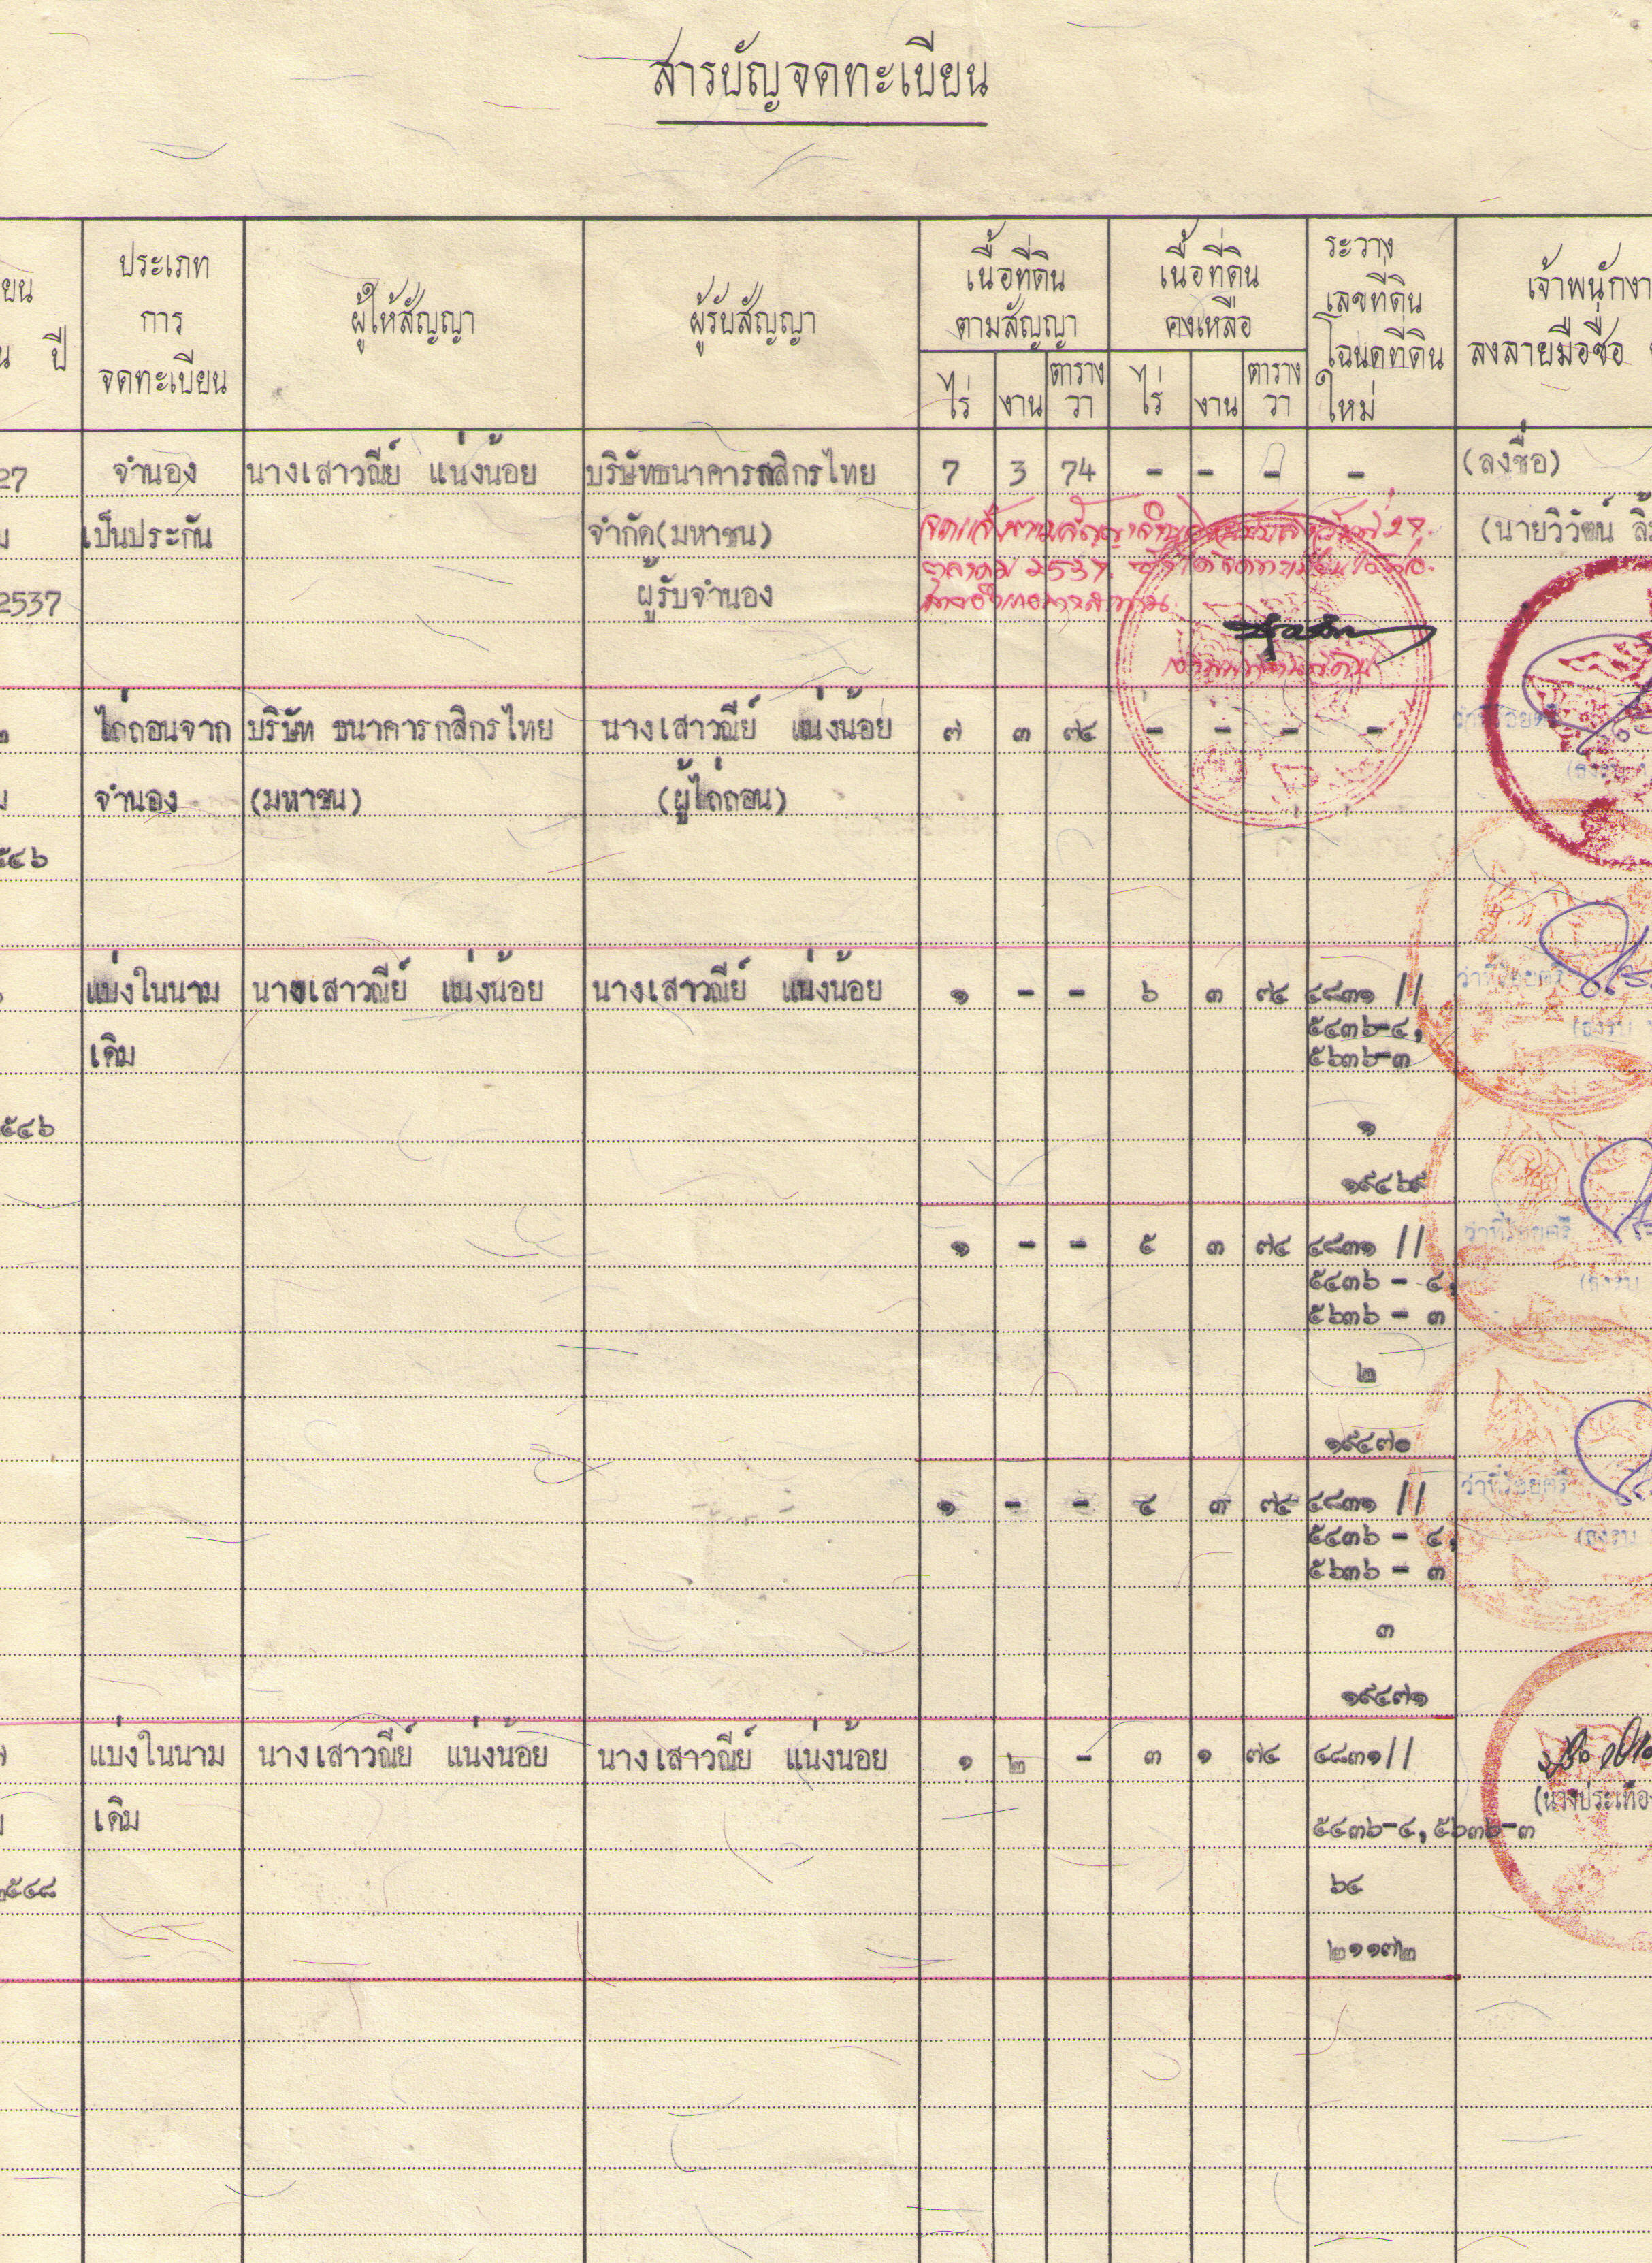 สารบัญจดทะเบียน
ประเภท
การ
จดทะเบียน
ผู้ให้สัญญา
ผู้รับสัญญา
เนื้อที่ดิน
ตามสัญญา
เนื้อที่ดิน
คงเหลือ
ระวาง
เลขที่ดิน
โฉนดที่ดิน
ใหม่
ลงลายมือชื่อ
ปี
ไร่ งาน ตาราง วา ไร่ งาน ตาราง วา
27 จำนอง นางเสาวณีย์ แน่งน้อย บริษัทธนาคารกสิกรไทย 7 3 74 - - - - (ลงชื่อ)
เป็นประกัน จำกัด(มหาชน) (นายวิวัฒน์
2537 ผู้รับจำนอง
ไถ่ถอนจาก บริษัท ธนาคารกสิกรไทย นางเสาวณีย์ แน่งน้อย ๗ ๓ ๗๔ - - - - ว่าที่ร้อยตรี
จำนอง (มหาชน) (ผู้ไถ่ถอน)
๕๔๖
แบ่งในนาม นางเสาวณีย์ แน่งน้อย นางเสาวณีย์ แน่งน้อย ๑ - - ๖ ๓ ๗๔ ๔๘๓๑ // ว่าที่ร้อยตรี
๕๔๓๖-๔,
เดิม ๕๖๓๖-๓
๕๔๖ ๑
๑๙๔๖๙
๑ - - ๕ ๓ ๗๔ ๔๘๓๑ // ว่าที่ร้อยตรี
๕๔๓๖ - ๔,
๕๖๓๖ - ๓
๒
๑๙๔๗๐
๑ - - ๔ ๓ ๗๔ ๔๘๓๑ // ว่าที่ร้อยตรี
๕๔๓๖ - ๔,
๕๖๓๖ - ๓
๓
๑๙๔๗๑
แบ่งในนาม นางเสาวณีย์ แน่งน้อย นางเสาวณีย์ แน่งน้อย ๑ ๒ - ๓ ๑ ๗๔ ๔๘๓๑//
เดิม ๕๔๓๖-๔, ๕๖๓๖-๓
๒๕๔๘ ๖๔
๒๑๑๗๒